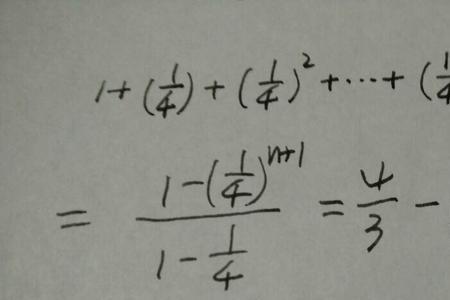 1+(1/4)+(1/4)^2+⋯+(1/4
=(1-(1/4)^(n+1))/(1-1/4)=4/3-